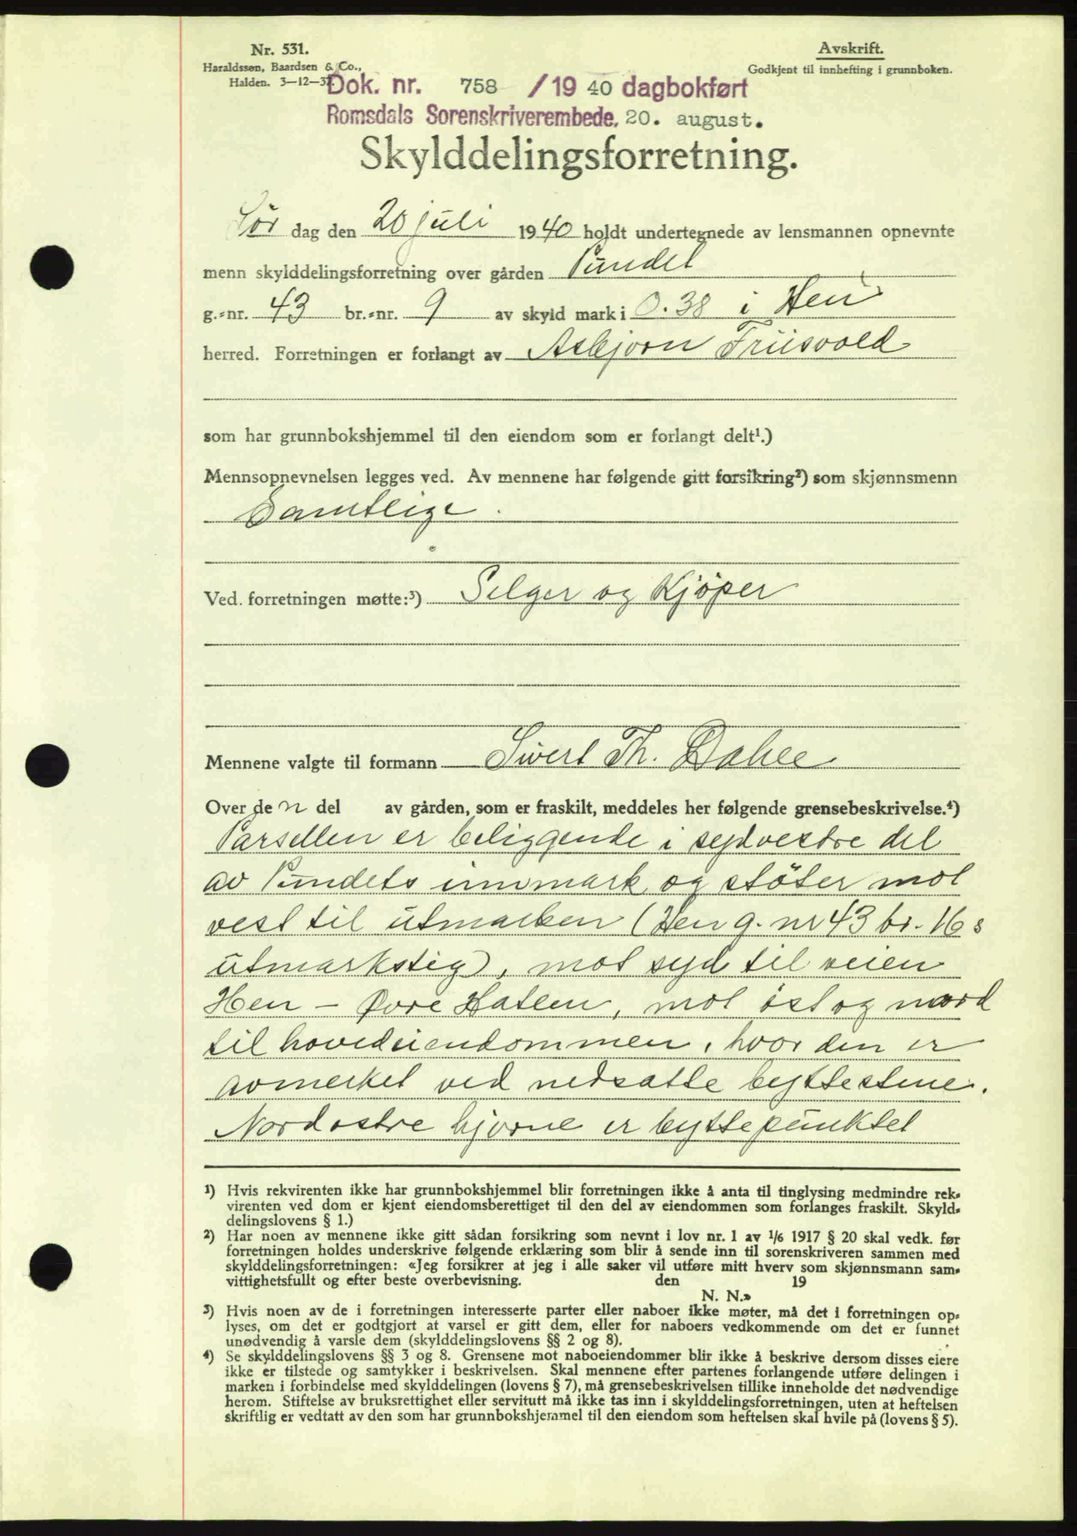 Nr. 531.
Haraldssen, Baardsen & Co.,
Halden. 3-12-37.
Avskrift.
Godkjent til innhefting i grunnboken.
Dok. nr. 758 /1940 dagbokført
Romsdals Sorenskriverembede, 20. august.
Skylddelingsforretning.
Lør dag den 20 juli 1940 holdt undertegnede av lensmannen opnevnte
menn skylddelingsforretning over gården Pundet
g.-nr. 43 br.-nr. 9 av skyld mark i 0.38 i Hen
herred. Forretningen er forlangt av Asbjørn Friisvold
som har grunnbokshjemmel til den eiendom som er forlangt delt¹.)
Mennsopnevnelsen legges ved. Av mennene har følgende gitt forsikring²) som skjønnsmenn
Samtlige.
Ved. forretningen møtte:³) Selger og Kjøper
Mennene valgte til formann Sivert Th. Dahle
Over den del av gården, som er fraskilt, meddeles her følgende grensebeskrivelse.⁴)
Parsellen er beliggende i sydvestre del
av Pundets innmark og støter mot
vest til utmarken (Hen g. nr 43 br. 16s
utmarkstig), mot syd til veien
Hen - Øvre Hatlen, mot øst og nord
til hovedeiendommen, hvor den er
avmerket ved nedsatte byttestene.
Nordøstre hjørne er byttepunktet
¹) Hvis rekvirenten ikke har grunnbokshjemmel blir forretningen ikke å anta til tinglysing medmindre rek-
virenten ved dom er kjent eiendomsberettiget til den del av eiendommen som forlanges fraskilt. Skyld-
delingslovens § 1.)
²) Har noen av mennene ikke gitt sådan forsikring som nevnt i lov nr. 1 av 1/6 1917 § 20 skal vedk. før
forretningen holdes underskrive følgende erklæring som blir å sende inn til sorenskriveren sammen med
skylddelingsforretningen: «Jeg forsikrer at jeg i alle saker vil utføre mitt hverv som skjønnsmann sam-
vittighetsfullt og efter beste overbevisning. den 19
N. N.»
³) Hvis noen av de i forretningen interesserte parter eller naboer ikke møter, må det i forretningen op-
lyses, om det er godtgjort at varsel er gitt dem, eller for naboers vedkommende om det er funnet
unødvendig å varsle dem (skylddelingslovens §§ 2 og 8).
⁴) Se skylddelingslovens §§ 3 og 8. Grensene mot naboeiendommer blir ikke å beskrive dersom disses eiere
ikke er tilstede og samtykker i beskrivelsen. Skal mennene efter partenes forlangende utføre delingen i
marken i forbindelse med skylddelingen (lovens § 7), må grensebeskrivelsen tillike inneholde det nødvendige
herom. Stiftelse av bruksrettighet eller servitutt må ikke tas inn i skylddelingsforretningen, uten at heftelsen
skriftlig er vedtatt av den som har grunnbokshjemmel til den eiendom som heftelsen skal hvile på (lovens § 5).